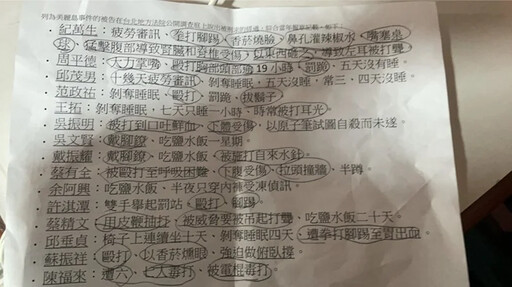 何為美麗島事件的被告在台北地方法院公開調查庭上
・紀萬生：疲勞審訊，拳打腳踢，香菸燒臉，鼻孔灌辣椒水，嘴塞桌
球，猛擊腹部導致腎臟和脊椎受傷，導致左耳被打聾
・周平德：大力掌嘴，毆打胸部頭部等19小時，罰跪，五天沒有睡
・邱茂男：十幾天疲勞審訊，剝奪睡眠，五天沒睡，常三、四天沒睡。
・范政祐：剝奪睡眠，毆打，罰跪，拔鬍子
・王拓：剝奪睡眠，七天只睡一小時，時常被打耳光
・吳振明：被打到口吐鮮血，下體受傷，以原子筆試圖自殺而未遂。
・吳文賢：戴腳鐐，吃鹽水飯一星期。
・戴振耀：戴腳鐐，吃鹽水飯，被施打自來水針
・蔡有全：被毆打至呼吸困難，下腹受傷，拉頭撞牆，半蹲。
・余阿興：吃鹽水飯，半夜只穿內褲受凍偵訊。
・許淇潭：雙手舉起罰站，毆打，腳踢
・蔡精文：用皮鞭抽打，被威脅要被吊起打聾，吃鹽水飯二十天。
・邱垂貞：椅子上連續坐十天，剝奪睡眠四天，遭拳打腳踢至胃出血。
・蘇振祥：毆打，以香菸燻眼，強迫做俯臥撐。
・陳福來：遭六、七人毒打，被電棍毒打。